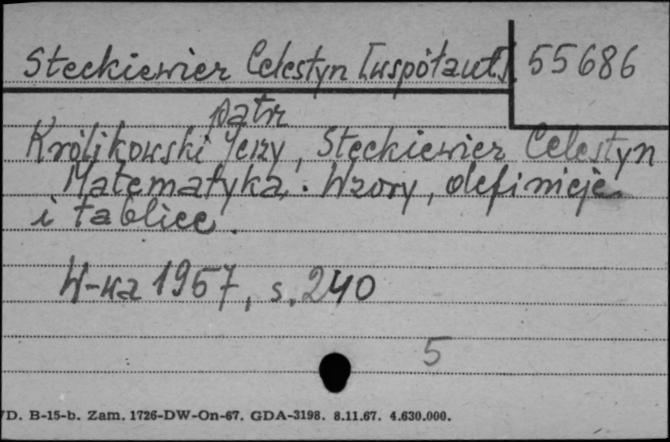 Steckiewicz Celestyn [współaut.] 55686
patrz
Królikowski Jerzy, Steckiewicz Celestyn
Matematyka. Wzory, definicje
i tablice.
W-wa 1967, s. 240
5
D. B-15-b. Zam. 1726-DW-On-67. GDA-3198. 8.11.67. 4.630.000.